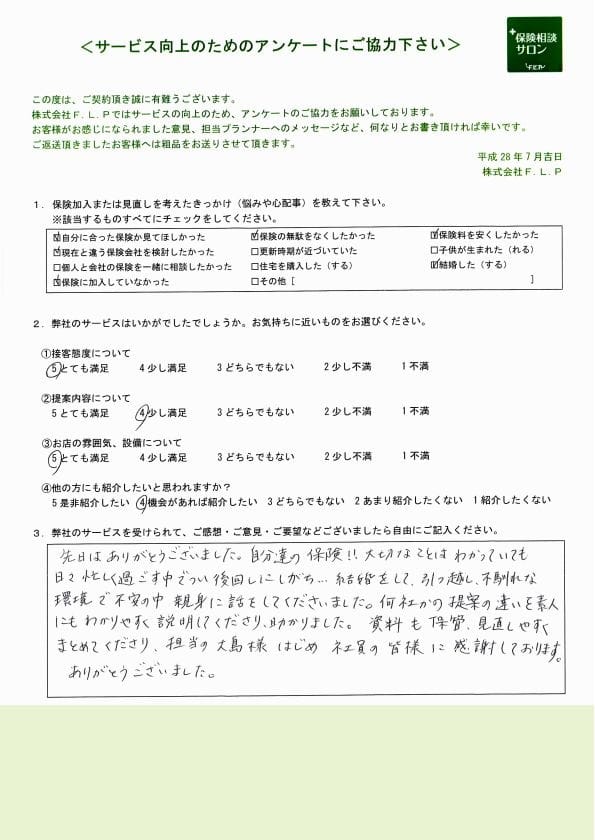 ＜サービス向上のためのアンケートにご協力下さい＞
保険相談
サロン
F.L.P
この度は、ご契約頂き誠に有難うございます。
株式会社Ｆ．Ｌ．Ｐではサービスの向上のため、アンケートのご協力をお願いしております。
お客様がお感じになられました意見、担当プランナーへのメッセージなど、何なりとお書き頂ければ幸いです。
ご返送頂きましたお客様へは粗品をお送りさせて頂きます。
平成 28 年 7 月吉日
株式会社Ｆ．Ｌ．Ｐ
１．保険加入または見直しを考えたきっかけ（悩みや心配事）を教えて下さい。
※該当するものすべてにチェックをしてください。
☑自分に合った保険か見てほしかった ☑保険の無駄をなくしたかった ☑保険料を安くしたかった
☑現在と違う保険会社を検討したかった □更新時期が近づいていた □子供が生まれた（れる）
□個人と会社の保険を一緒に相談したかった □住宅を購入した（する） ☑結婚した（する）
☑保険に加入していなかった □その他［ ］
２．弊社のサービスはいかがでしたでしょうか。お気持ちに近いものをお選びください。
①接客態度について
5 とても満足 4 少し満足 3 どちらでもない 2 少し不満 1 不満
②提案内容について
5 とても満足 4 少し満足 3 どちらでもない 2 少し不満 1 不満
③お店の雰囲気、設備について
5 とても満足 4 少し満足 3 どちらでもない 2 少し不満 1 不満
④他の方にも紹介したいと思われますか？
5 是非紹介したい 4 機会があれば紹介したい 3 どちらでもない 2 あまり紹介したくない 1 紹介したくない
３．弊社のサービスを受けられて、ご感想・ご意見・ご要望などございましたら自由にご記入ください。
先日はありがとうございました。自分達の保険!! 大切なことはわかっていても
日々忙しく過ごす中でつい後回しにしがち… 結婚をして、引っ越し、不馴れな
環境で不安の中 親身に話をしてくださいました。何社かの提案の違いを素人
にもわかりやすく説明してくださり、助かりました。資料も保管、見直しやすく
まとめてくださり、担当の大島様はじめ 社員の皆様に感謝しております。
ありがとうございました。